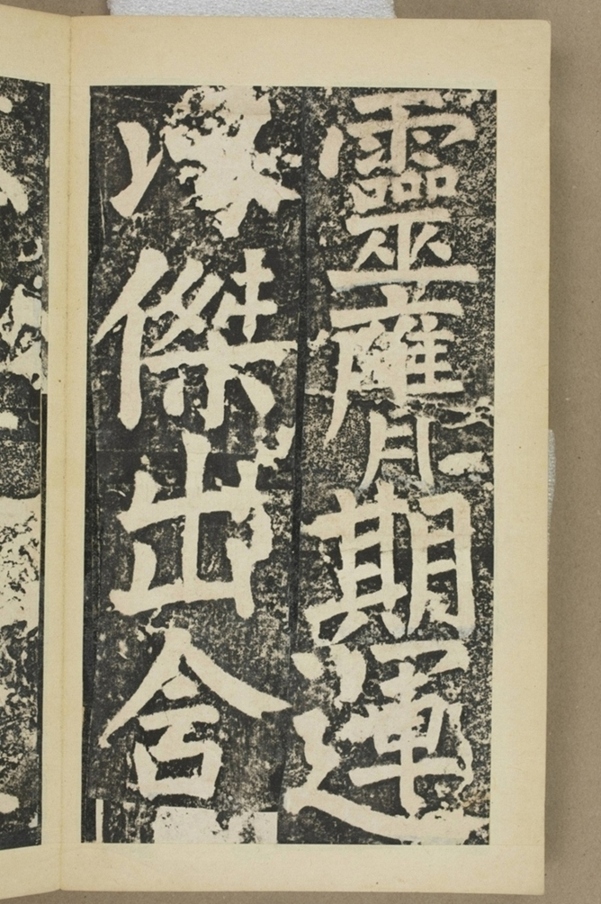 靈膺期運
傑出含